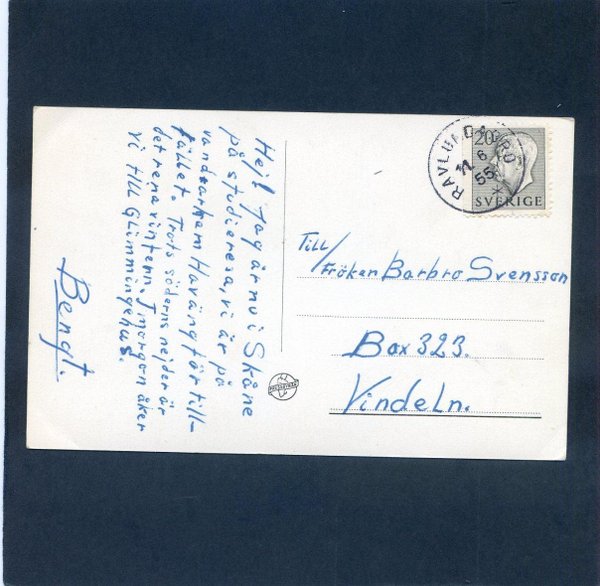 Hej! Jag är nu i Skåne
på studieresa, vi är på
vandrarhem Haväng för till-
fället. Trots söderns nejder är
det rena vintern. I morgon åker
vi till Glimmingehus.
Bengt.
20
SVERIGE
RAVLUNDABRO
11 6 55
Till/
Fröken Barbro Svensson
Box 323.
Vindeln.